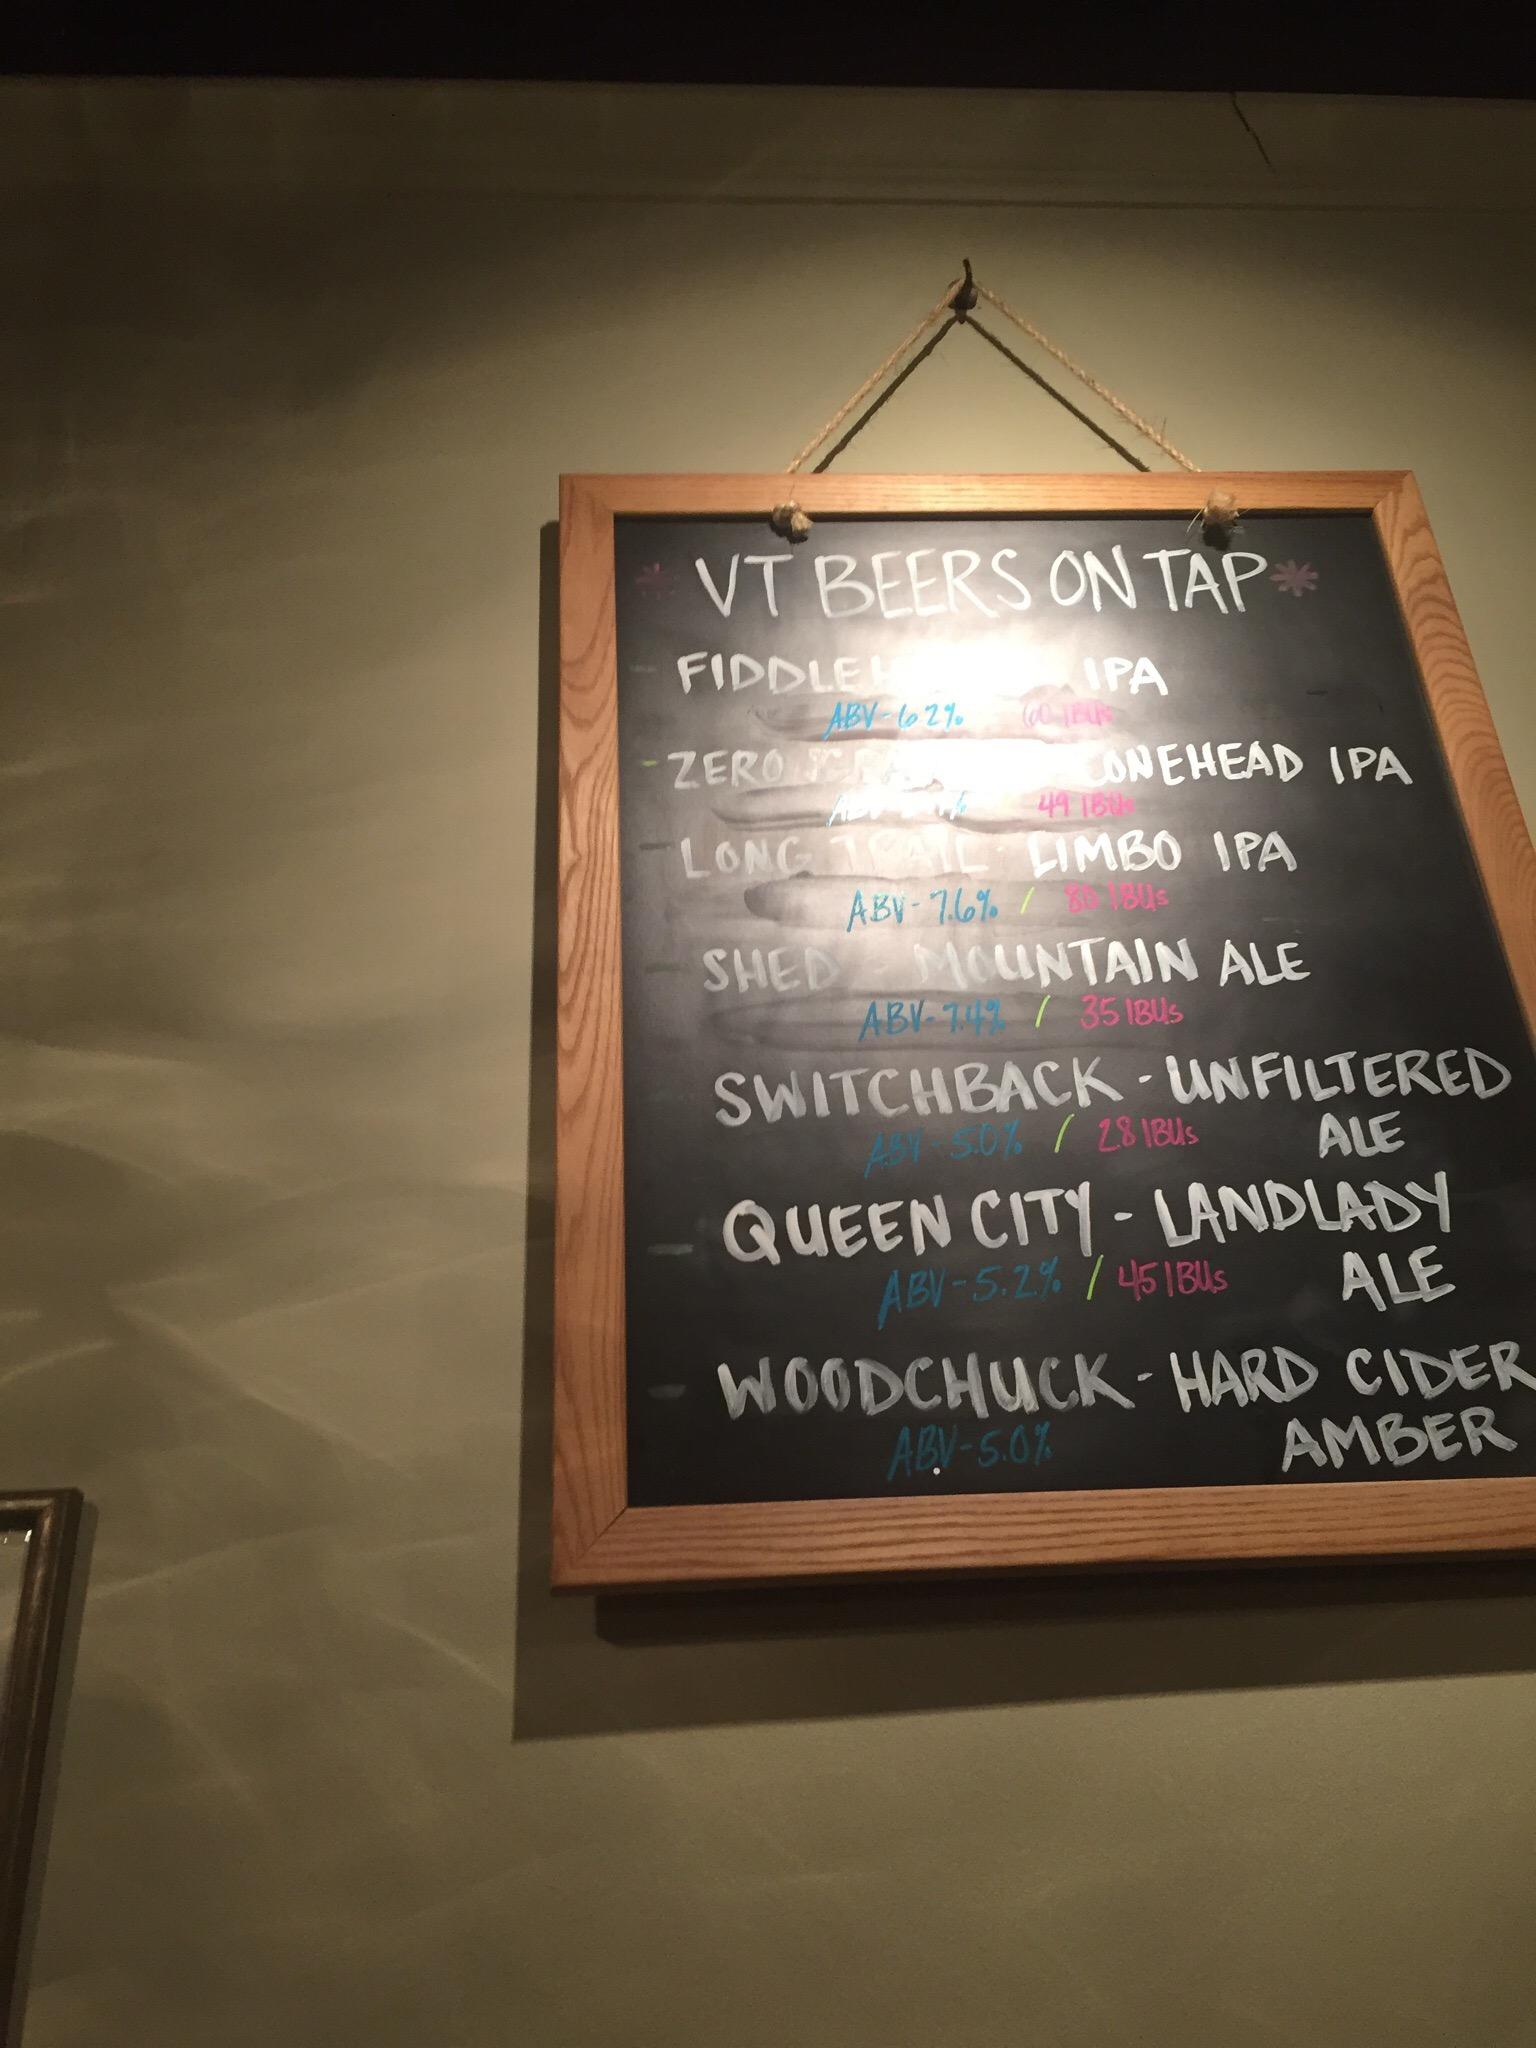 * VT BEERS ON TAP *
- IPA
ABV - 6.2% 60 IBUs
- ZERO CONEHEAD IPA
49 IBUs
- LONG TRAIL - LIMBO IPA
ABV - 7.6% / 80 IBUs
- SHED - MOUNTAIN ALE
ABV - 7.4% / 35 IBUs
SWITCHBACK - UNFILTERED
ABV - 5.0% / 28 IBUs ALE
- QUEEN CITY - LANDLADY
ABV - 5.2% / 45 IBUs ALE
- WOODCHUCK - HARD CIDER
ABV - 5.0% AMBER